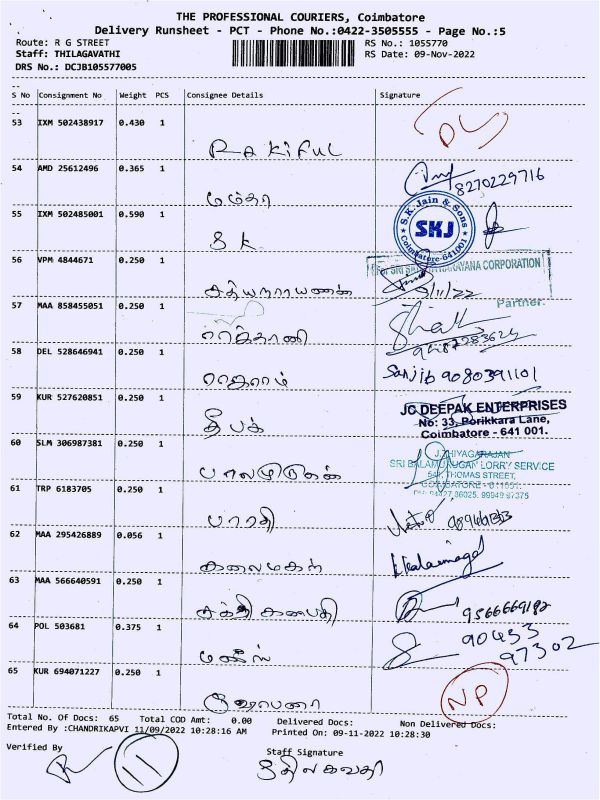 THE PROFESSIONAL COURIERS, Coimbatore
Delivery Runsheet - PCT - Phone No.:0422-3505555 - Page No.:5
Route: R G STREET RS No.: 1055770
Staff: THILAGAVATHI RS Date: 09-Nov-2022
DRS No.: DCJB105577005
S No Consignment No Weight PCS Consignee Details Signature
53 IXM 502438917 0.430 1
Rakiful
54 AMD 25612496 0.365 1
8270229716
மம்தா
55 IXM 502485001 0.590 1
S.K.Jain & Sons
SKJ
Coimbatore-641001
S K
56 VPM 4844671 0.250 1
CORPORATION
சத்யநாராயணன்
Partner
57 MAA 858455051 0.250 1
58 DEL 528646941 0.250 1
Sanjib 9080391101
ராஜாராம்
59 KUR 527620851 0.250 1
JC DEEPAK ENTERPRISES
No: 33, Porikkara Lane,
Coimbatore - 641 001.
தீபக்
60 SLM 306987381 0.250 1
J.THIYAGARAJAN
SRI BALAMURUGAN LORRY SERVICE
541, THOMAS STREET,
பாலமுருகன்
61 TRP 6183705 0.250 1
பாரதி
62 MAA 295426889 0.056 1
Kalaimagal
கலைமகள்
63 MAA 566640591 0.250 1
9566669182
சக்தி கணபதி
64 POL 503681 0.375 1
90453
97302
65 KUR 694071227 0.250 1
NP
Total No. Of Docs: 65 Total COD Amt: 0.00 Delivered Docs: Non Delivered Docs:
Entered By :CHANDRIKAPVI 11/09/2022 10:28:16 AM Printed On: 09-11-2022 10:28:30
Verified By Staff Signature
11
திலகவதி